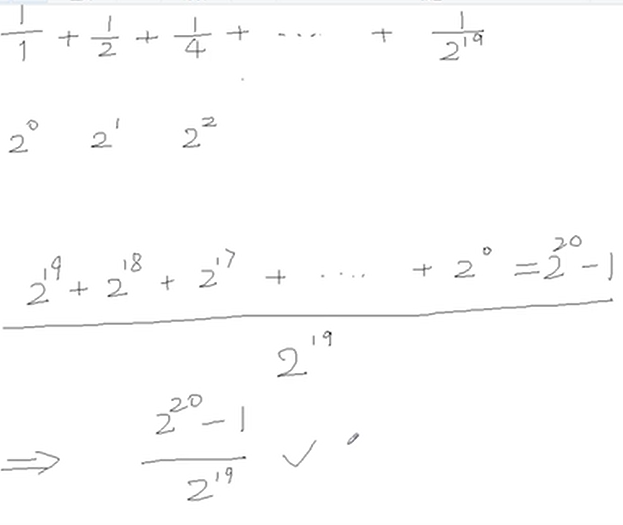 1/1 + 1/2 + 1/4 + .... + 1/2^19
2^0 2^1 2^2
2^19 + 2^18 + 2^17 + .... + 2^0 = 2^20 - 1
2^19
⇒ (2^20 - 1)/2^19 ✓